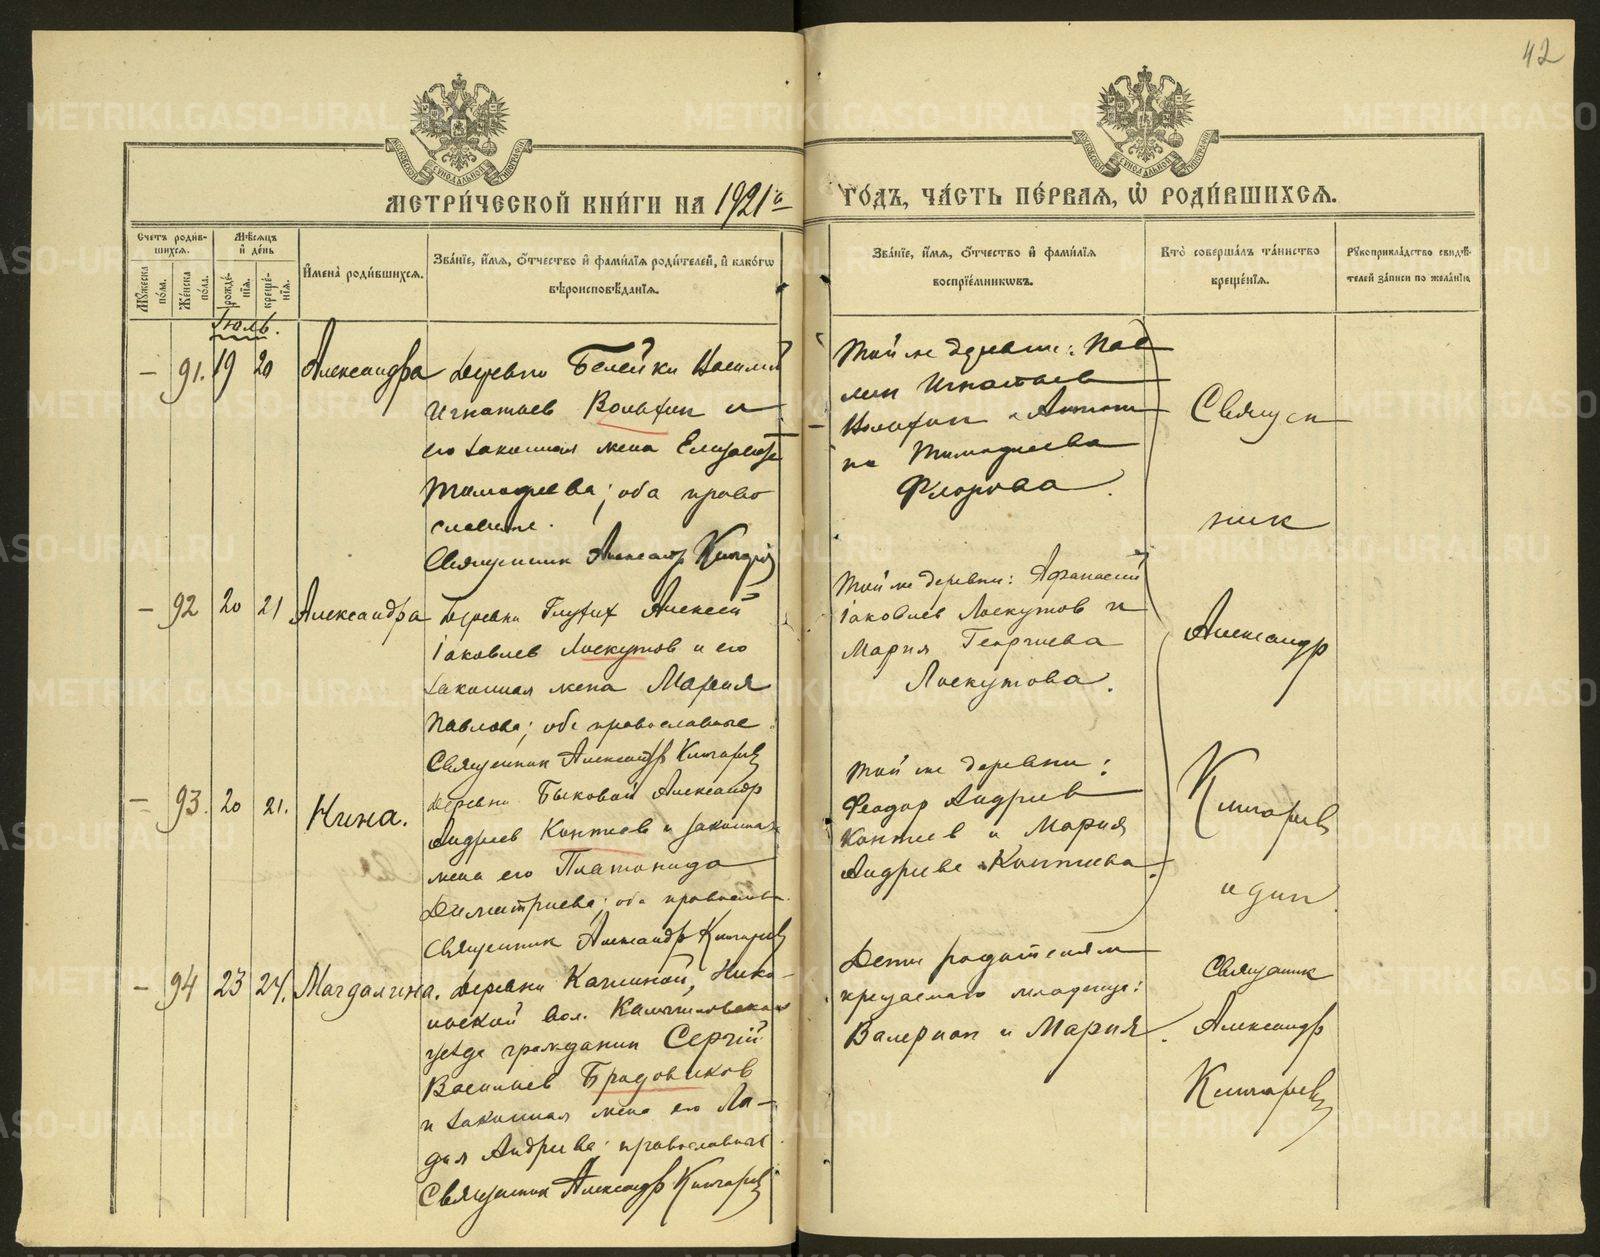 42
МЕТРИ́ЧЕСКОЙ КНИ́ГИ НА 1921 й
ГО́ДЪ, ЧА́СТЬ ПЕ́РВАЯ, Ѡ҆ РОДИ́ВШИХСЯ.
Счетъ роди́вшихся.
Мѣ́сяцъ и҆ де́нь
Мꙋ́жеска по́ла.
Же́нска по́ла.
рожде́нїя.
креще́нїя.
И҆мена̀ роди́вшихся.
Зва́нїе, и҆́мя, ѻ҆́тчество и҆ фами́лїя роди́телей, и҆ како́гѡ
вѣроисповѣ́данїя.
Зва́нїе, и҆́мя, ѻ҆́тчество и҆ фами́лїя
воспрїе́мникѡвъ.
Кто̀ соверша́лъ та́инство
креще́нїя.
Рꙋкоприкла́дство свидѣ́-
телей за́писи по жела́нїю
Іюль.
– 91. 19 20 Александра
деревни Белейки Василий
Игнатьев
и
его законная жена Елизавета
Тимофеева; оба право
славные.
Священник Александр
Той же деревни: Пав
лин Игнатьев
Тимофеева
Флорова.
– 92 20 21 Александра
деревни Глухих Алексей
Іаковлев Лоскутов и его
законная жена Мария
Павлова; оба православные.
Священник Александр
Той же деревни: Афанасий
Іаковлев Лоскутов и
Мария Георгиева
Лоскутова.
– 93. 20 21. Нина.
деревни Быковой Александр
Андреев Коптяев и законная
жена его Платонида
Димитриева; оба православн.
Священник Александр
Той же деревни:
Феодор Андреев
Коптяев и Мария
Андреева Коптяева.
Священ
ник
Александр
один.
– 94 23 24. Магдалина.
деревни
вол. Камышловского
уезда гражданин Сергій
Васильев Брадовиков
и законная жена его Ли-
дия Андреева; православные.
Священник Александр
Дети родителям
крещаемаго младенца:
Валериан и Мария.
Священник
Александр
METRIKI.GASO-URAL.RU